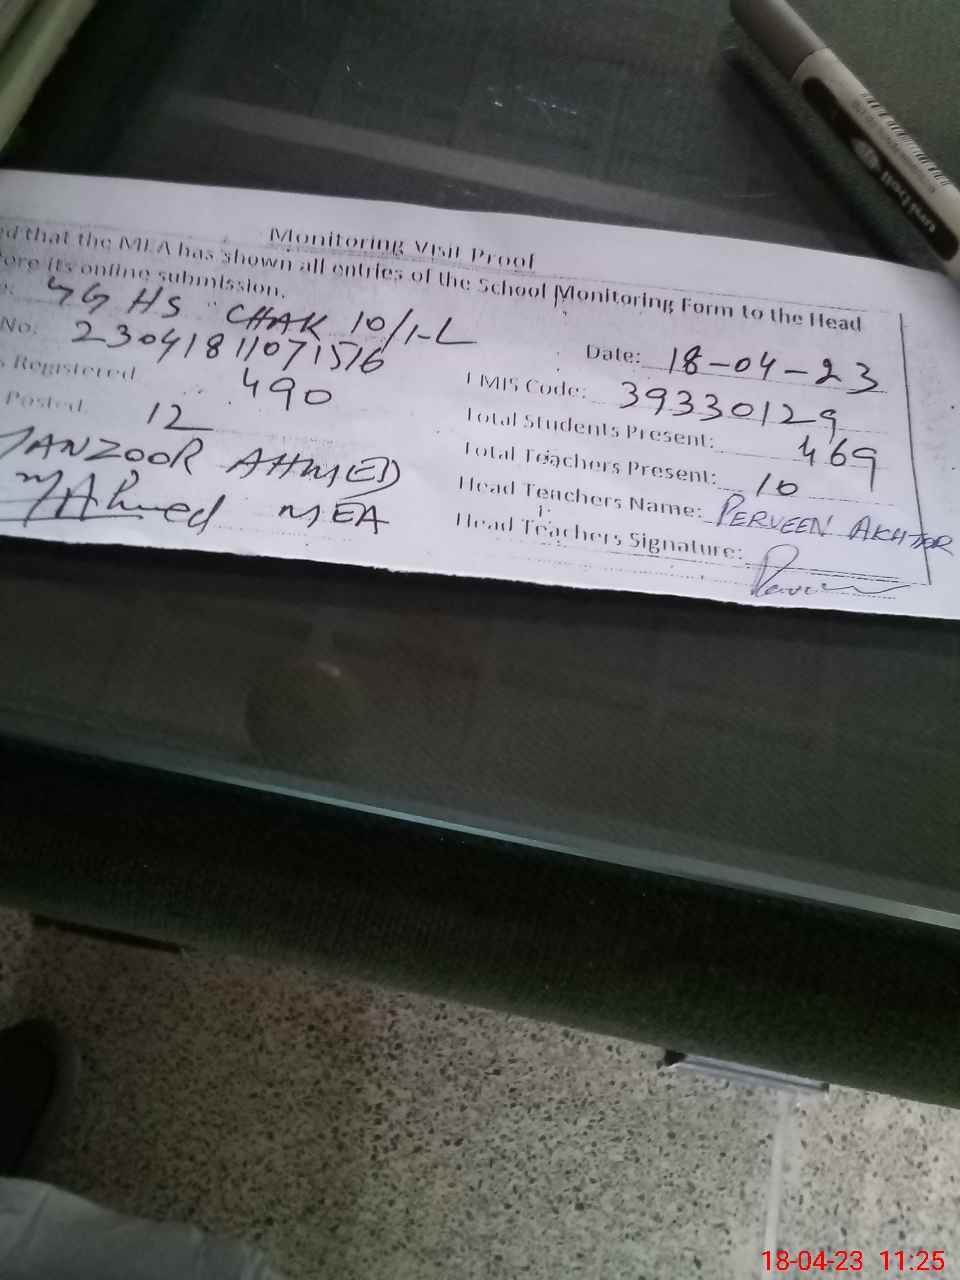 Monitoring Visit Proof
ed that the MEA has shown all entries of the School Monitoring Form to the Head
ore its online submission.
GGHS CHAK 10/1-L
Date: 18-04-23
No: 23041811071516
EMIS Code: 39330129
Registered 490
Total Students Present: 469
Posted 12
Total Teachers Present: 10
MANZOOR AHMED
Head Teachers Name: PERVEEN AKHTAR
MAhmed MEA
Head Teachers Signature:
18-04-23 11:25